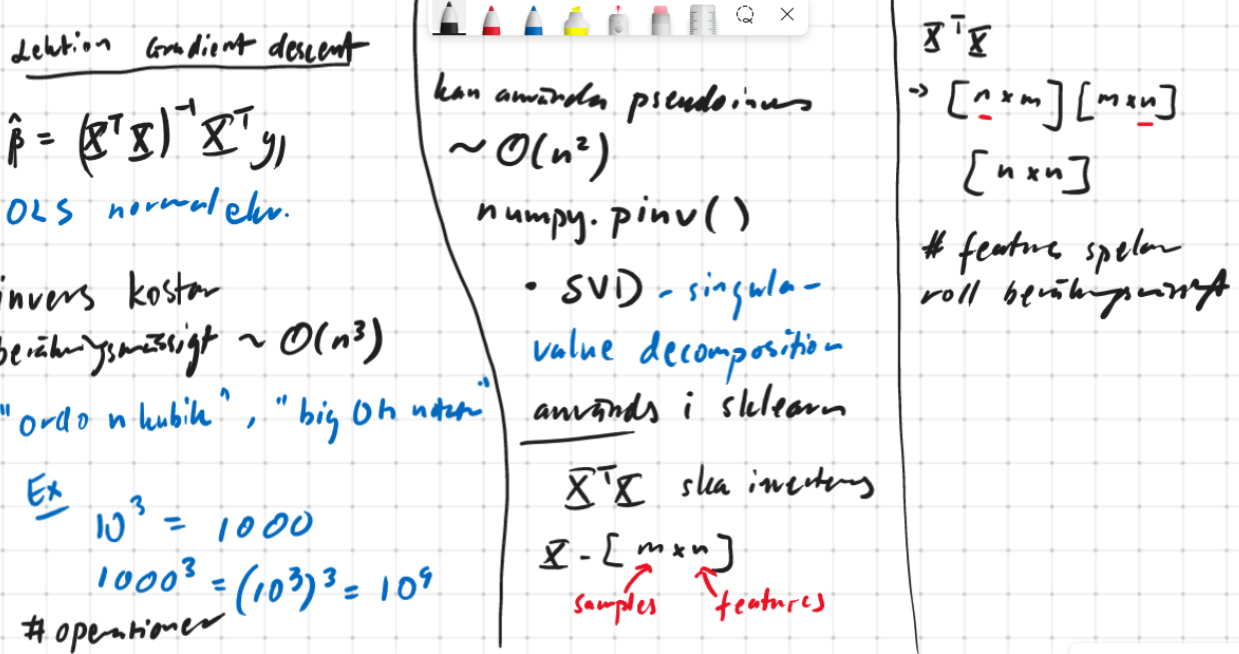 Lektion Gradient descent
β̂ = (XᵀX)⁻¹Xᵀy,
OLS normalekv.
invers kostar
beräkningsmässigt ~ O(n³)
"ordo n kubik", "big Oh notation"
Ex
10³ = 1000
1000³ = (10³)³ = 10⁹
# operationer
kan använda pseudoinvers
~ O(n²)
numpy.pinv()
• SVD - singular
value decomposition
används i sklearn
XᵀX ska inverteras
X - [m×n]
samples features
XᵀX
→ [n×m][m×n]
[n×n]
# features spelar
roll beräkningsmässigt